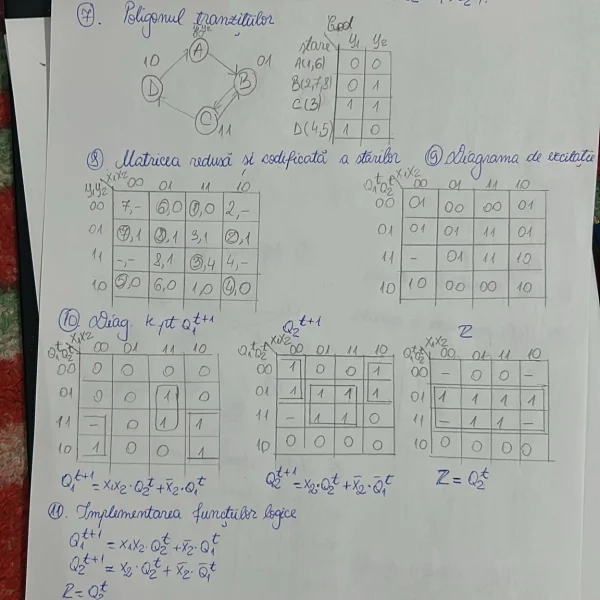 7. Poligonul tranzițiilor
y₁y₂
A
10
01
D
B
C
11
Cod
stare y₁ y₂
A(1,6) 0 0
B(2,7,8) 0 1
C(3) 1 1
D(4,5) 1 0
8 Matricea redusă și codificată a stărilor
x₁x₂
y₁y₂ 00 01 11 10
00 7,- 6,0 1,0 2,-
01 7,1 8,1 3,1 2,1
11 -,- 8,1 3,4 4,-
10 5,0 6,0 1,0 4,0
9 Diagrama de excitație
x₁x₂
Q₁ᵗQ₂ᵗ 00 01 11 10
00 01 00 00 01
01 01 01 11 01
11 - 01 11 10
10 10 00 00 10
10 Diag. K pt Q₁ᵗ⁺¹
x₁x₂
Q₁ᵗQ₂ᵗ 00 01 11 10
00 0 0 0 0
01 0 0 1 0
11 - 0 1 1
10 1 0 0 1
Q₁ᵗ⁺¹ = x₁x₂·Q₂ᵗ + x̄₂·Q₁ᵗ
Q₂ᵗ⁺¹
x₁x₂
Q₁ᵗQ₂ᵗ 00 01 11 10
00 1 0 0 1
01 1 1 1 1
11 - 1 1 0
10 0 0 0 0
Q₂ᵗ⁺¹ = x₂·Q₂ᵗ + x̄₂·Q̄₁ᵗ
Z
x₁x₂
Q₁ᵗQ₂ᵗ 00 01 11 10
00 - 0 0 -
01 1 1 1 1
11 - 1 1 -
10 0 0 0 0
Z = Q₂ᵗ
11. Implementarea funcțiilor logice
Q₁ᵗ⁺¹ = x₁x₂·Q₂ᵗ + x̄₂·Q₁ᵗ
Q₂ᵗ⁺¹ = x₂·Q₂ᵗ + x̄₂·Q̄₁ᵗ
Z = Q₂ᵗ